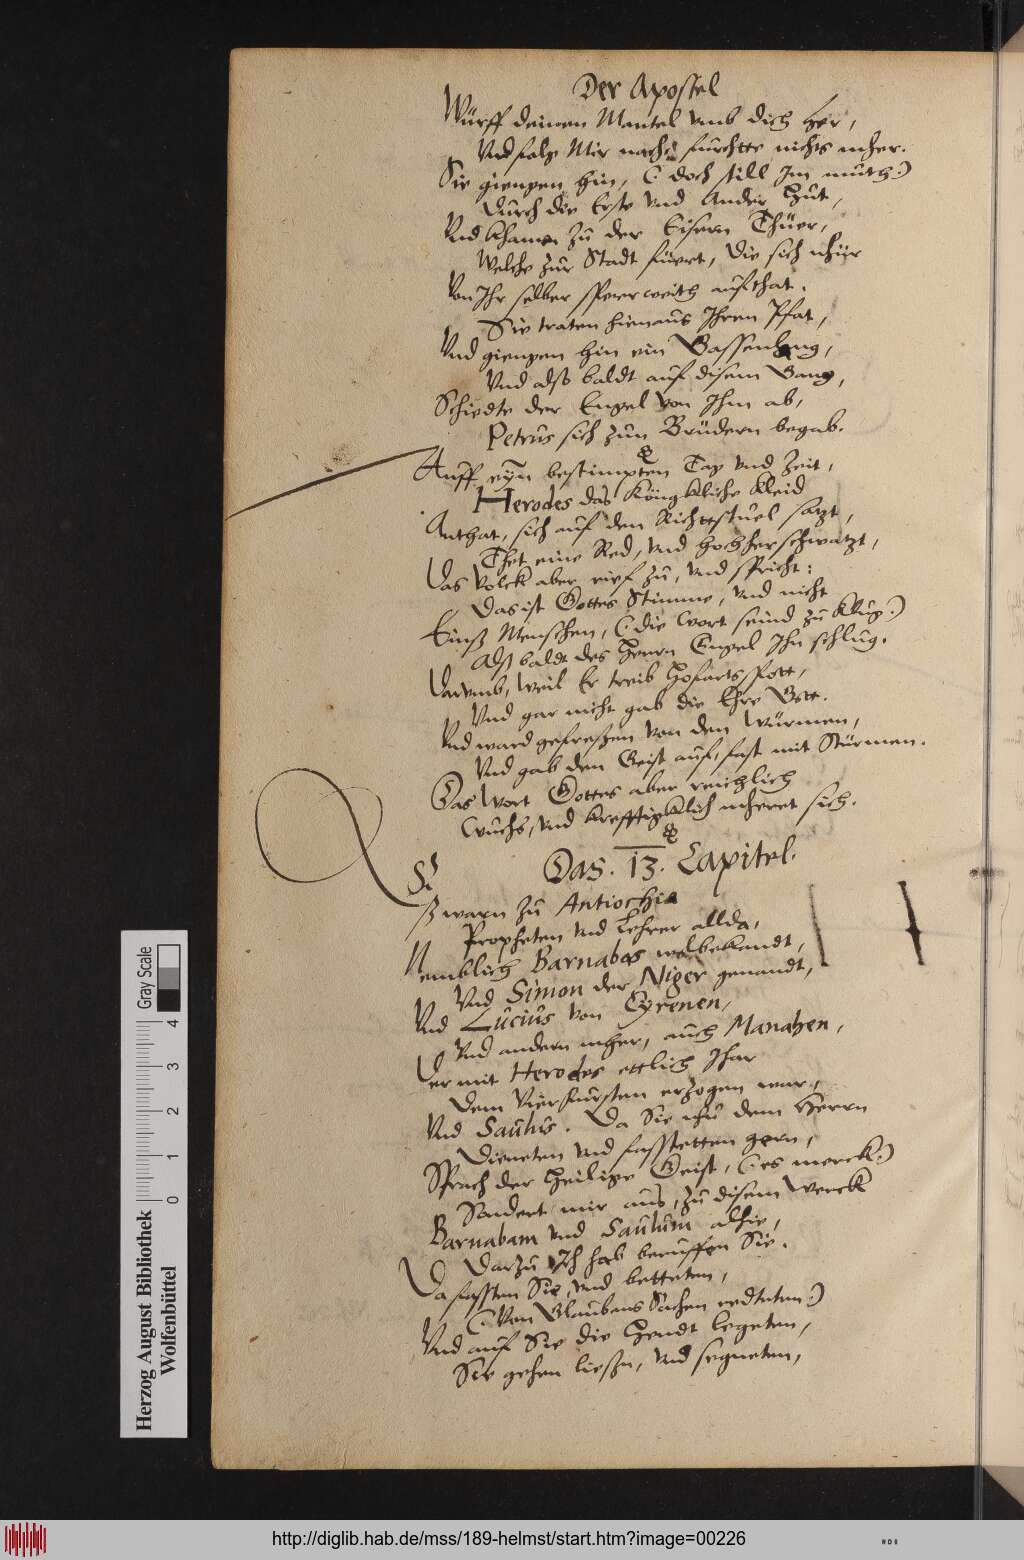 Der Apostel
Würff deinen Mantel vmb dich her,
Vnd folg Mir nach, fürchte nichts mher.
Sie giengen hin, (: doch still Im muth:)
Durch die Erste vnd Ander Hut,
Vnd khamen zů der Eisern Thüer,
Welche zur Stadt füert, die sich
Von Ihr selber auffthat.
Sie traten hienaus Ihren Pfat,
Vnd giengen hin ein Gassenlang,
Vnd alß baldt auf disem Gang,
Schiedte der Engel von Ihm ab,
Petrus sich zun Brüdern begab.
Auff eyn bestimpten Tag vnd Zeit,
Herodes das Köngkliche Kleid
Anthat, sich auf den Richtstuel satzt,
Thet eine Red, vnd hochher schwatzt,
Das Volck aber rief zů, vnd spricht:
Das ist Gottes Stimme, vnd nicht
Einß Menschen, (: die Wort seind zů klug:)
Alß baldt des Herrn Engel Ihn schlug.
Darumb, weil Er treib Hofarts spott,
Vnd gar nicht gab die Ehre Gott.
Vnd ward gefreßen von den Würmen,
Vnd gab den Geist auf, fast mit Stürmen.
Das Wort Gottes aber reichlich
Wuchs, vnd krefftigklich mheret sich.
Das . 13 . Capitel.
Eß warn zů Antiochia
Propheten vnd Lehrer allda,
Nemblich Barnabas wolbekandt,
Vnd Simon der Niger genandt,
Vnd Lucius von Cyrenen,
Vnd andern mher, auch Manahen,
Der mit Herodes ettlich Jhar
Dem Vierfürsten erzogen war,
Vnd Saulus. Da Sie nhů dem Herrn
Dieneten vnd fassteten gern,
Sprach der Heilige Geist, (: es merck:)
Sondert mir aus, zů disem Werck
Barnabam vnd Saulum alhie,
Darzů Ich hab beruffen Sie.
Da fassten Sie, vnd betteten,
(: Von Glaubens Sachen redteten:)
Vnd auf Sie die Hendt legeten,
Sie gehen ließn, vnd segneten,
Herzog August Bibliothek
Wolfenbüttel
Gray Scale
0 1 2 3 4
http://diglib.hab.de/mss/189-helmst/start.htm?image=00226